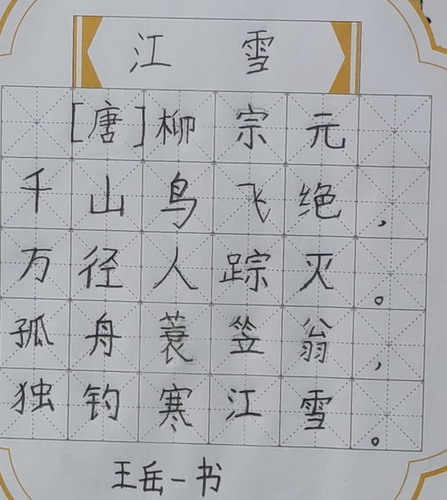 江雪
[唐]柳宗元
千山鸟飞绝，
万径人踪灭。
孤舟蓑笠翁，
独钓寒江雪。
王岳一书